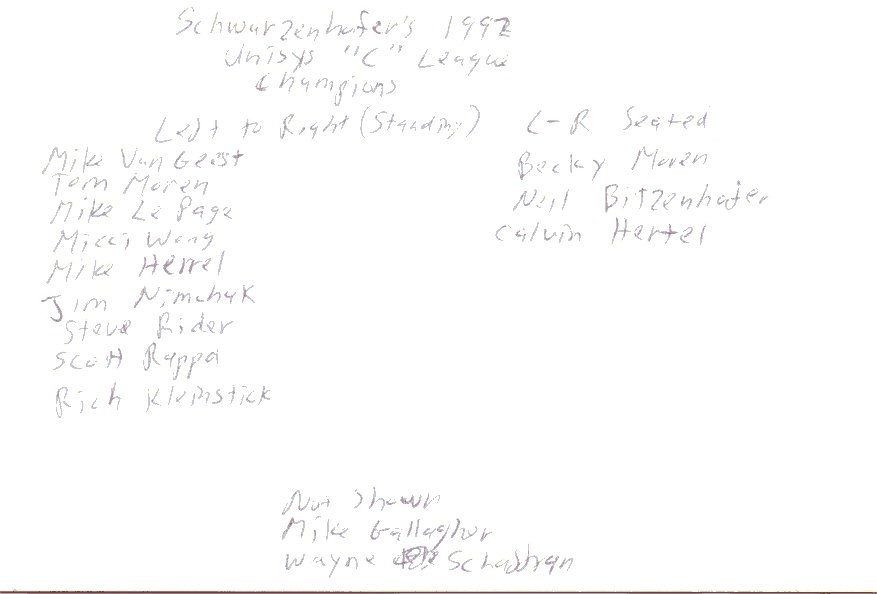 Schwarzenhafer's 1992
Unisys "C" League
Champions
Left to Right (Standing)
Mike Van Geest
Tom Moren
Mike Le Page
Micci Wong
Mike Herrel
Jim Nimchuk
Steve Rider
Scott Rappa
Rich Kleinstick
L-R Seated
Becky Moren
Neil Bitzenhafer
Calvin Hertel
Not Shown
Mike Gallagher
Wayne